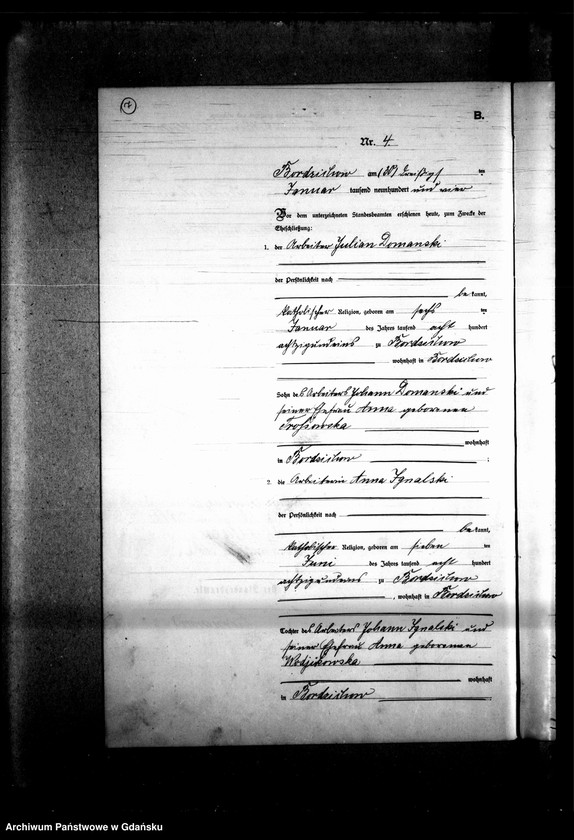 B.
Nr. 4.
Bordzichow am (30) dreißigs ten
Januar tausend neunhundert und vier
Vor dem unterzeichneten Standesbeamten erschienen heute, zum Zwecke der
Eheschließung:
1. der Arbeiter Julian Domanski
der Persönlichkeit nach
be kannt,
katholischer Religion, geboren am sechs ten
Januar des Jahres tausend acht hundert
achtzigundeins zu Bordzichow
wohnhaft in Bordzichow
Sohn des Arbeiters Johann Domanski und
seiner Ehefrau Anna geborenen
wohnhaft
in Bordzichow
2. die Arbeiterin Anna Ignalski
der Persönlichkeit nach
be kannt,
katholischer Religion, geboren am sieben ten
Juni des Jahres tausend acht hundert
achtzigundeins zu Bordzichow
, wohnhaft in Bordzichow
Tochter des Arbeiters Johann Ignalski und
seiner Ehefrau Anna geborenen
wohnhaft
in Bordzichow
Archiwum Państwowe w Gdańsku